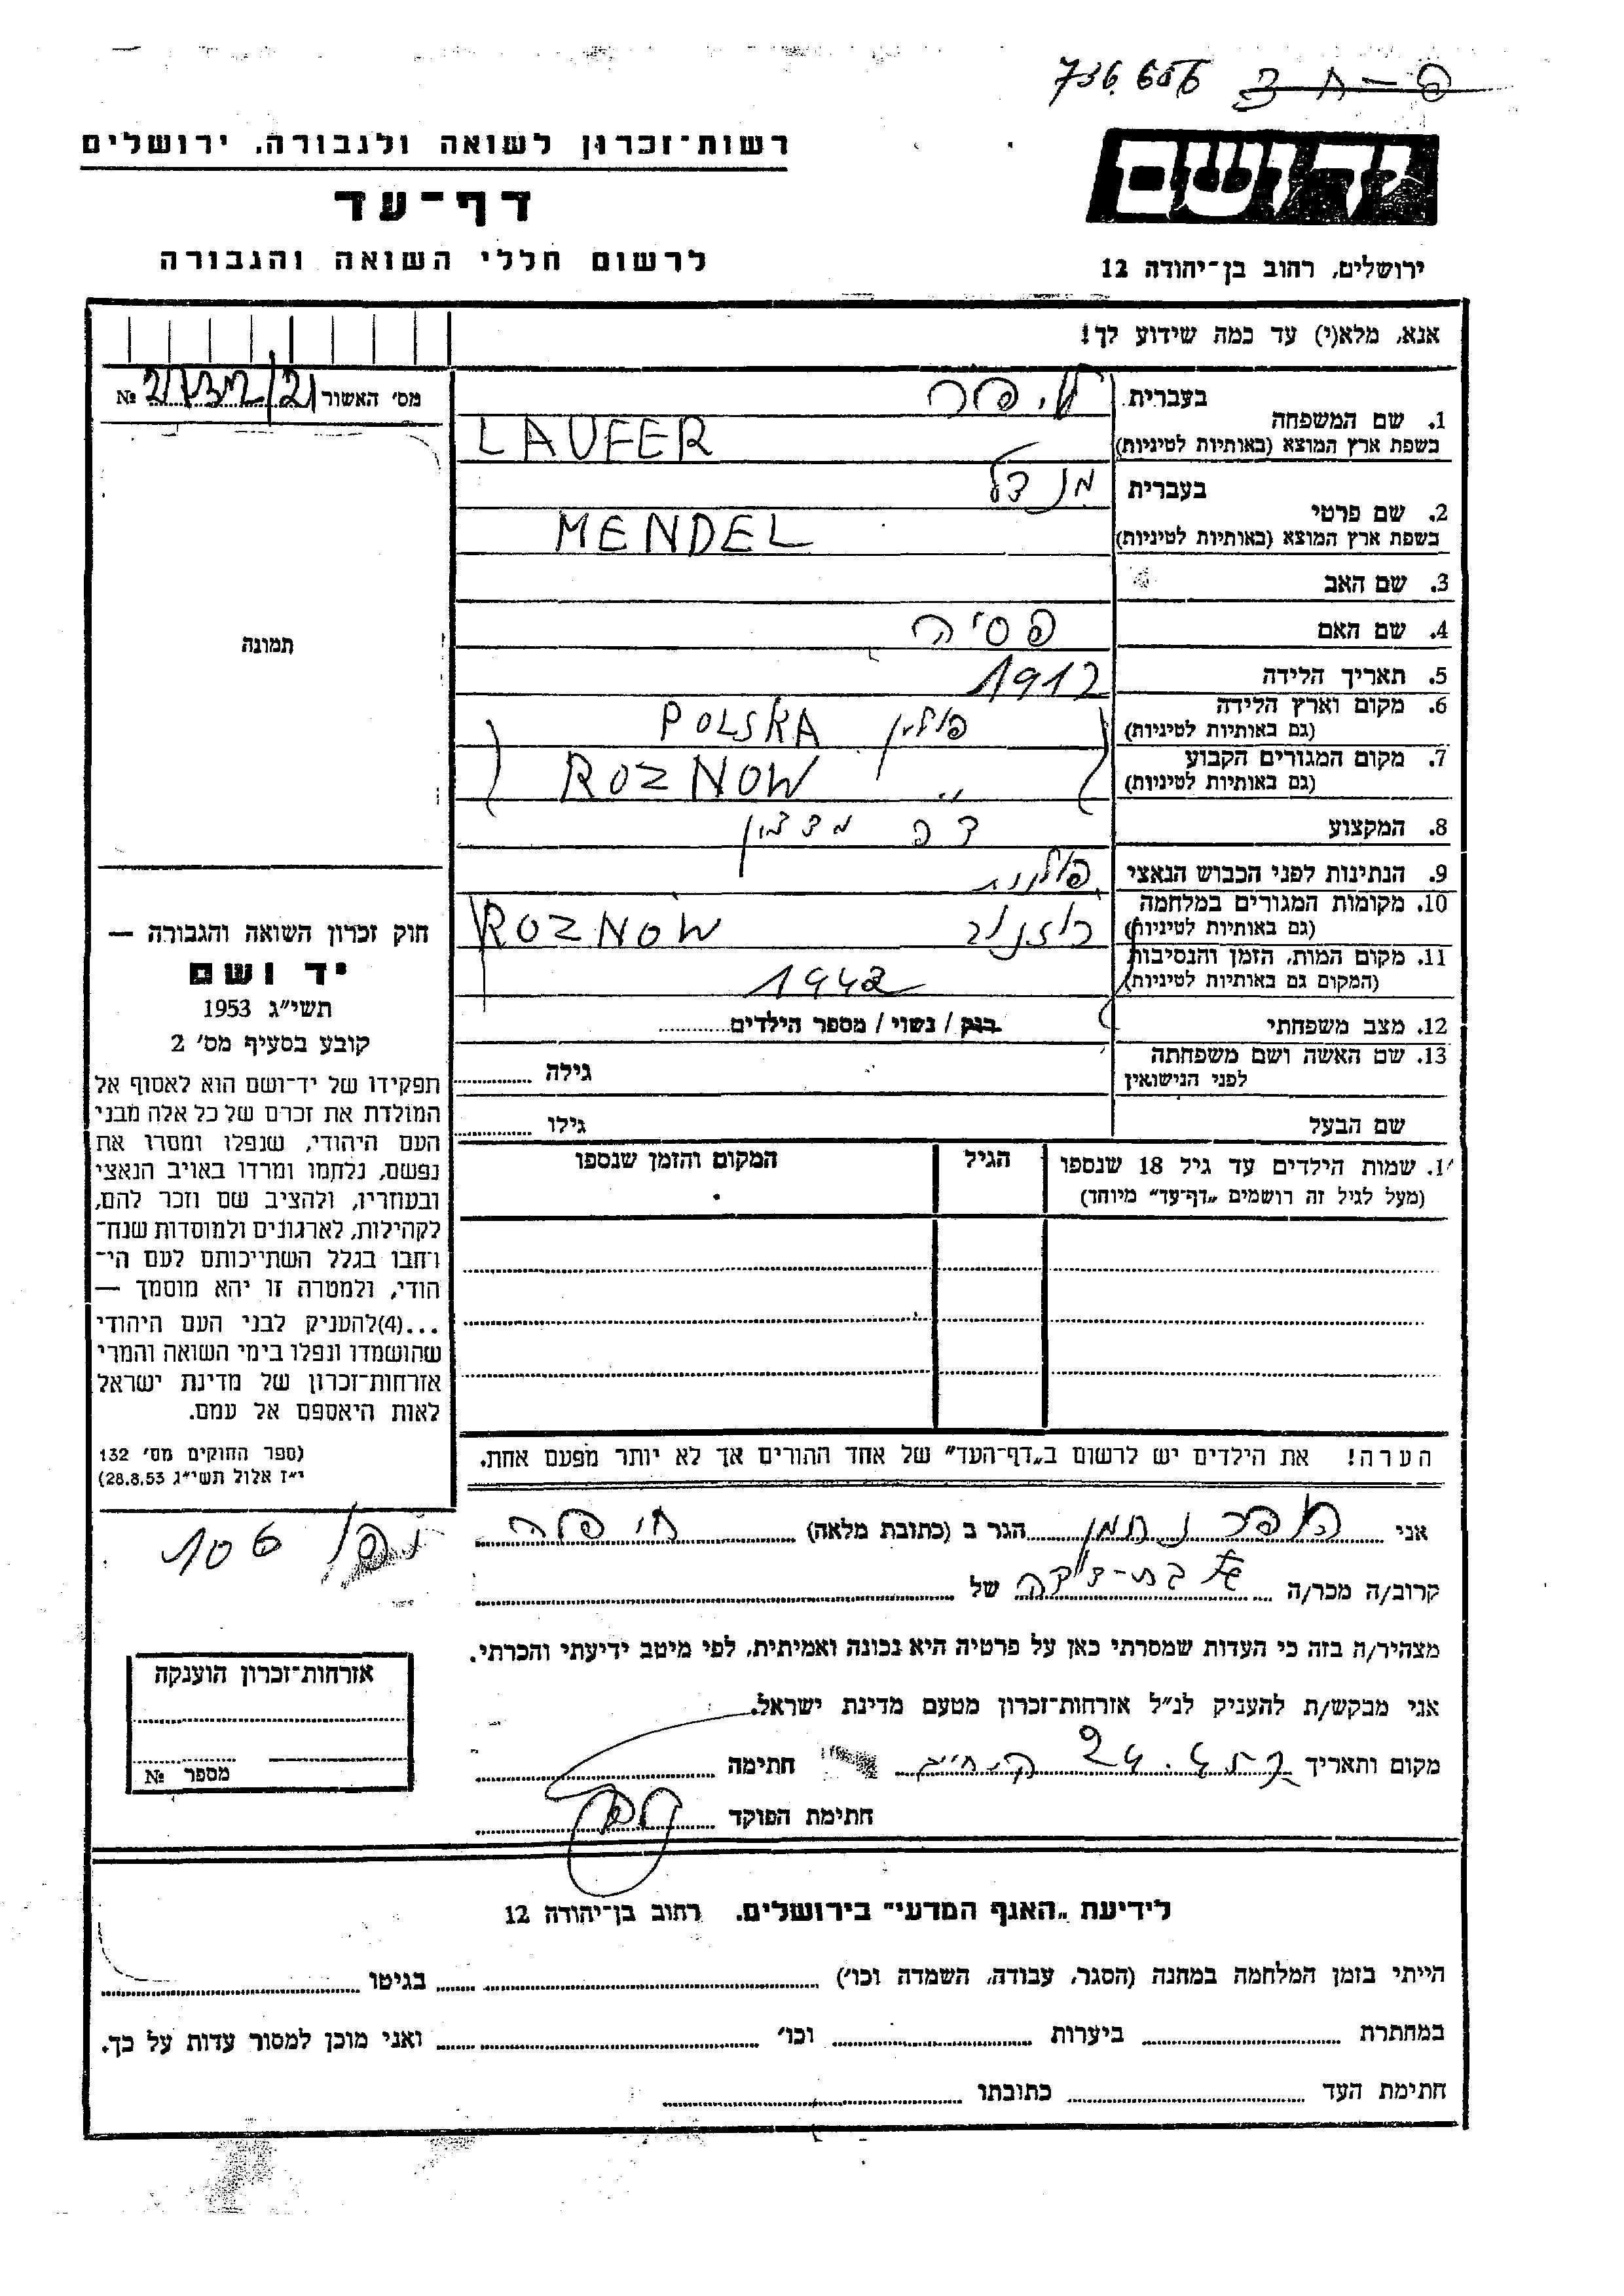 736.656
רשות־זכרון לשואה ולגבורה. ירושלים
דף־עד
לרשום חללי השואה והגבורה
יד ושם
ירושלים, רחוב בן־יהודה 12
אנא, מלא(י) עד כמה שידוע לך!
מס׳ האשור №
1. שם המשפחה
בעברית
בשפת ארץ המוצא (באותיות לטיניות) LAUFER
2. שם פרטי
בעברית מנדל
בשפת ארץ המוצא (באותיות לטיניות) MENDEL
3. שם האב
4. שם האם פסיה
5. תאריך הלידה 1912
6. מקום וארץ הלידה פולין POLSKA
(גם באותיות לטיניות)
7. מקום המגורים הקבוע " ROZNOW
(גם באותיות לטיניות)
8. המקצוע
9. הנתינות לפני הכבוש הנאצי פולנית
10. מקומות המגורים במלחמה רוזנוב ROZNOW
(גם באותיות לטיניות)
11. מקום המות, הזמן והנסיבות 1942
(המקום גם באותיות לטיניות)
12. מצב משפחתי רווק / נשוי / מספר הילדים
13. שם האשה ושם משפחתה גילה
לפני הנישואין
שם הבעל גילו
14. שמות הילדים עד גיל 18 שנספו הגיל המקום והזמן שנספו
(מעל לגיל זה רושמים „דף־עד״ מיוחד)
תמונה
חוק זכרון השואה והגבורה —
יד ושם
תשי״ג 1953
קובע בסעיף מס׳ 2
תפקידו של יד־ושם הוא לאסוף אל
המולדת את זכרם של כל אלה מבני
העם היהודי, שנפלו ומסרו את
נפשם, נלחמו ומרדו באויב הנאצי
ובעוזריו, ולהציב שם וזכר להם,
לקהילות, לארגונים ולמוסדות שנח־
רחבו בגלל השתייכותם לעם הי־
הודי, ולמטרה זו יהא מוסמך —
...(4)להעניק לבני העם היהודי
שהושמדו ונפלו בימי השואה והמרי
אזרחות־זכרון של מדינת ישראל
לאות היאספם אל עמם.
(ספר החוקים מס׳ 132
י״ז אלול תשי״ג 28.8.53)
הערה! את הילדים יש לרשום ב„דף־העד״ של אחד ההורים אך לא יותר מפעם אחת.
אני נחמן הגר ב (כתובת מלאה) חיפה
106
קרוב/ה מכר/ה בת־דודה של
מצהיר/ה בזה כי העדות שמסרתי כאן על פרטיה היא נכונה ואמיתית, לפי מיטב ידיעתי והכרתי.
אני מבקש/ת להעניק לנ״ל אזרחות־זכרון מטעם מדינת ישראל.
מקום ותאריך חתימה
חתימת הפוקד
אזרחות־זכרון הוענקה
מספר №
לידיעת „האגף המדעי״ בירושלים. רחוב בן־יהודה 12
הייתי בזמן המלחמה במחנה (הסגר, עבודה, השמדה וכו׳) בגיטו
במחתרת ביערות וכו׳ ואני מוכן למסור עדות על כך.
חתימת העד כתובתו